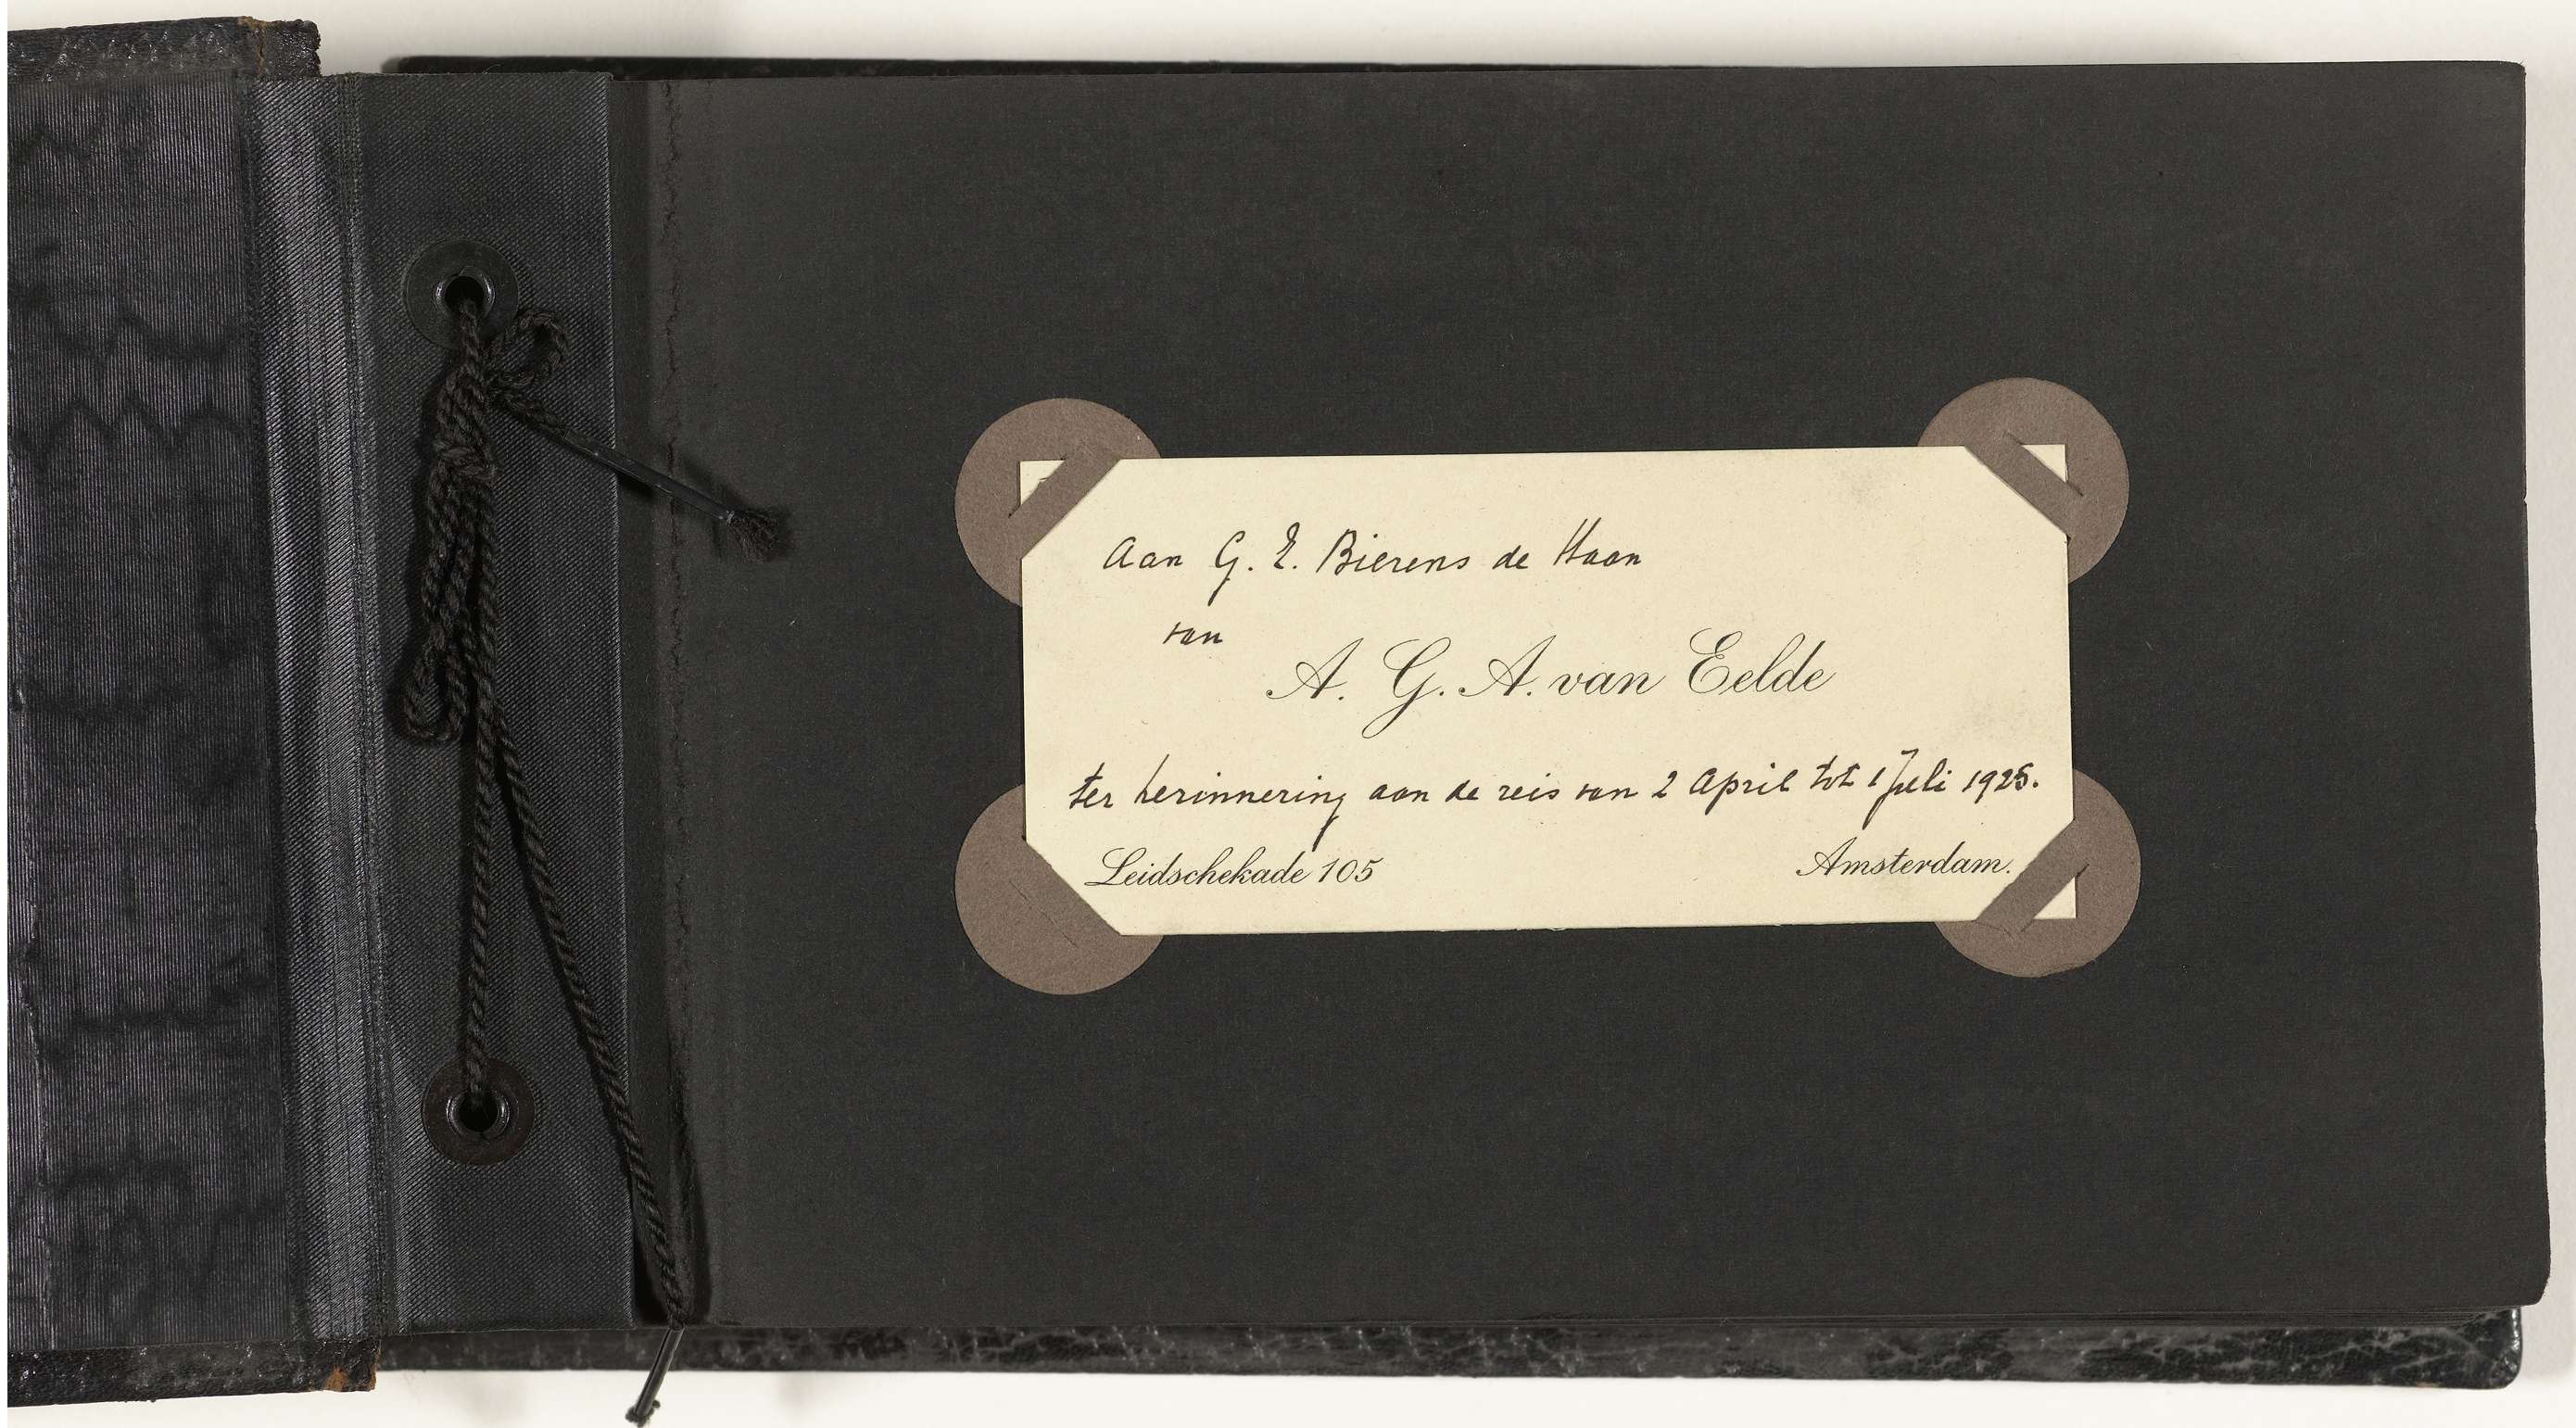 Aan G. E. Bierens de Haan
van
A. G. A. van Eelde
ter herinnering aan de reis van 2 April tot 1 Juli 1925.
Leidschekade 105 Amsterdam.